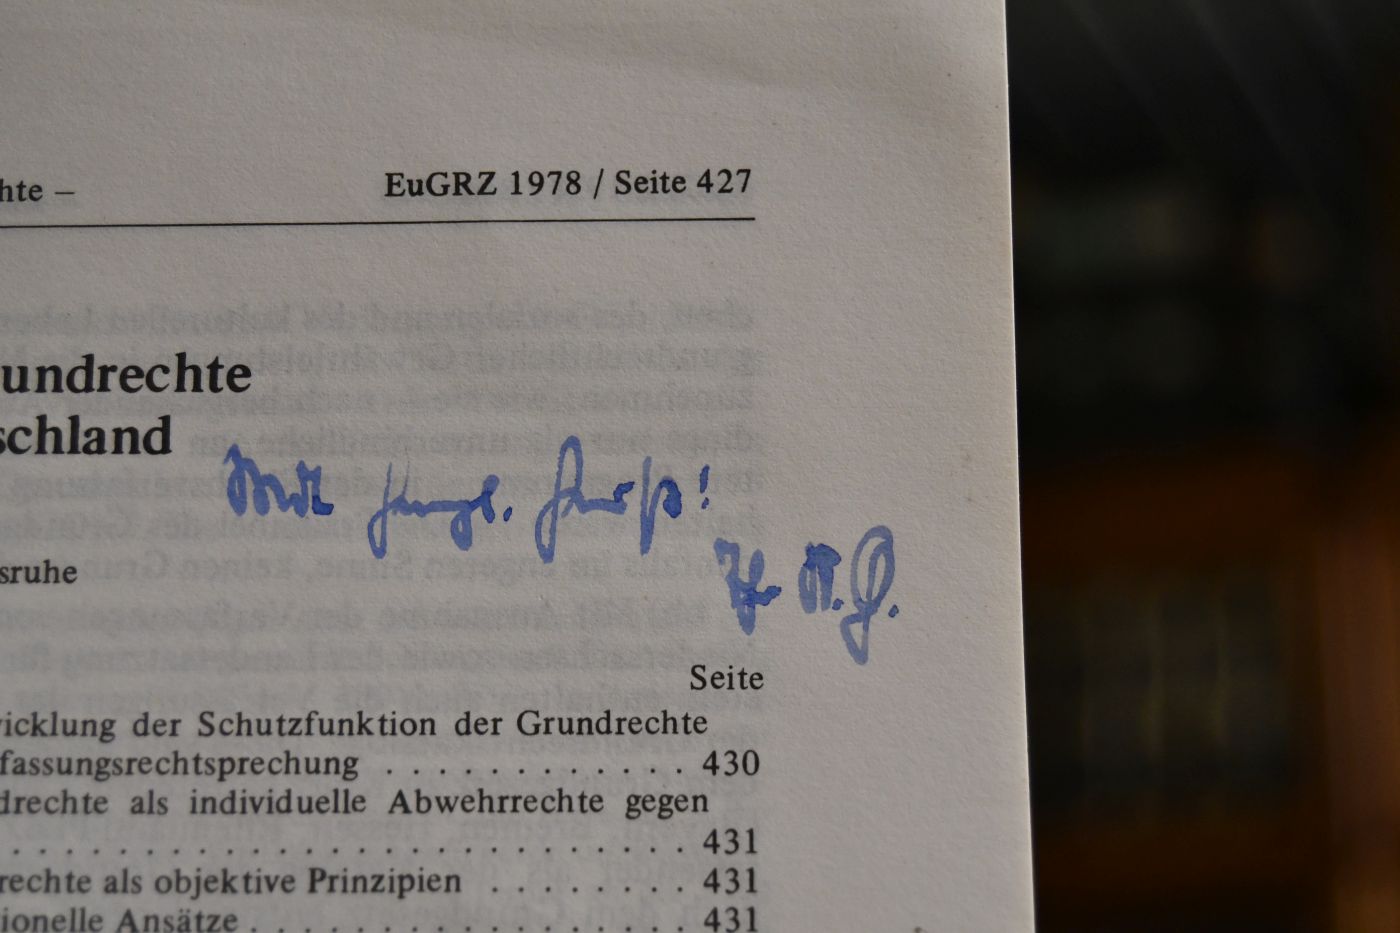 hte –
EuGRZ 1978 / Seite 427
undrechte
schland
Mit herzl. Gruß!
Ihr K. H.
sruhe
Seite
wicklung der Schutzfunktion der Grundrechte
fassungsrechtsprechung . . . . . . . . . . . . 430
drechte als individuelle Abwehrrechte gegen
. . . . . . . . . . . . . . . . . . . . . . . . . . 431
rechte als objektive Prinzipien . . . . . . . . 431
ionelle Ansätze . . . . . . . . . . . . . . . . . . 431